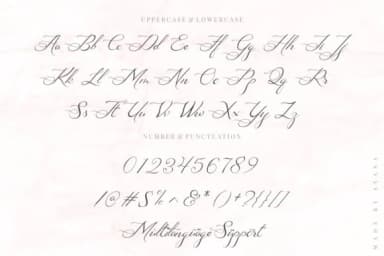 UPPERCASE & LOWERCASE
Aa Bb Cc Dd Ee Ff Gg Hh Ii Jj
Kk Ll Mm Nn Oo Pp Qq Rr
Ss Tt Uu Vv Ww Xx Yy Zz
NUMBER & PUNCTUATION
0123456789
!@#$%^&*()+?{}[]
Multilanguage Support
MADE BY